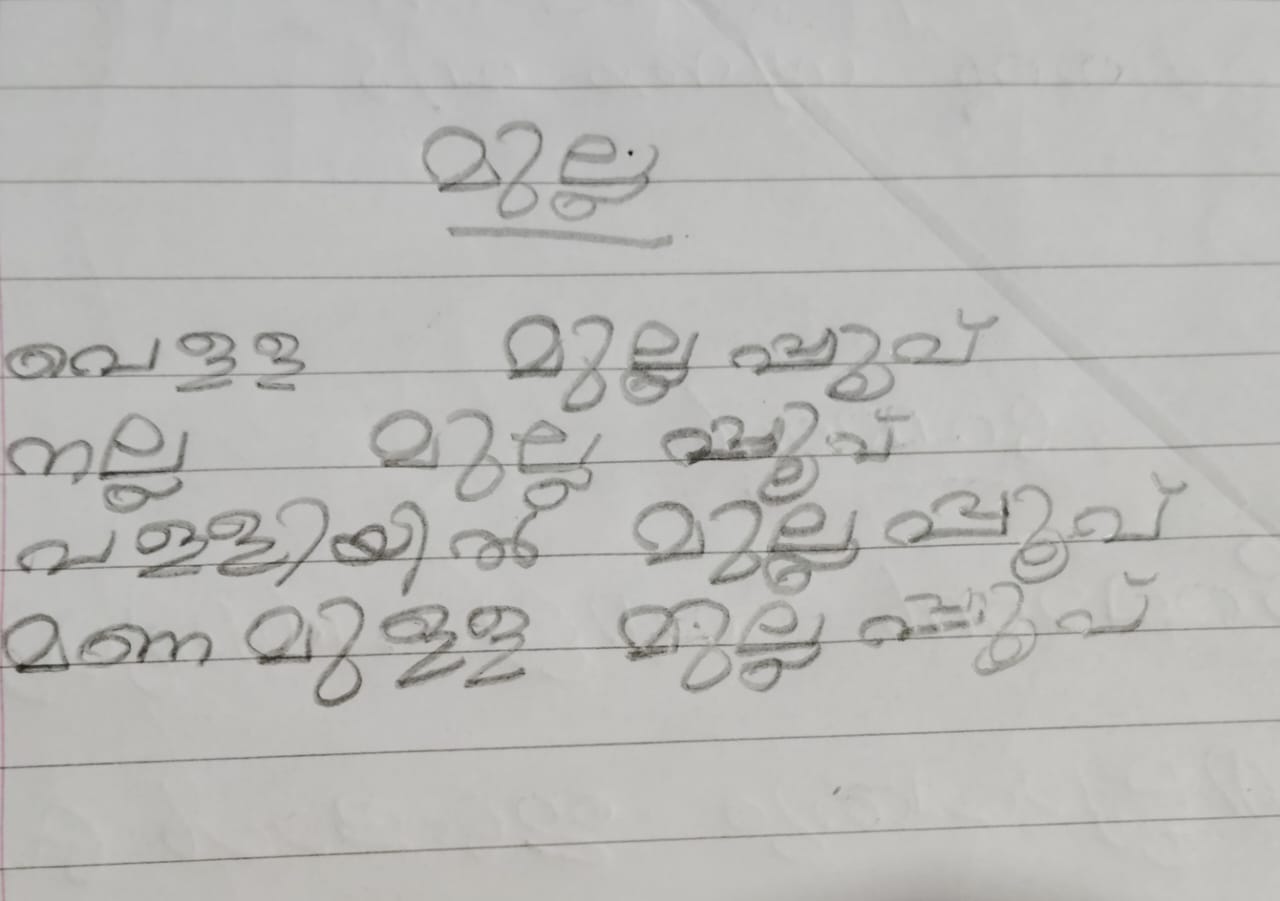 മുല്ല
വെള്ള മുല്ല പ്പൂവ്
നല്ല മുല്ല പ്പൂവ്
വള്ളിയിൽ മുല്ല പ്പൂവ്
മണമുള്ള മുല്ല പ്പൂവ്